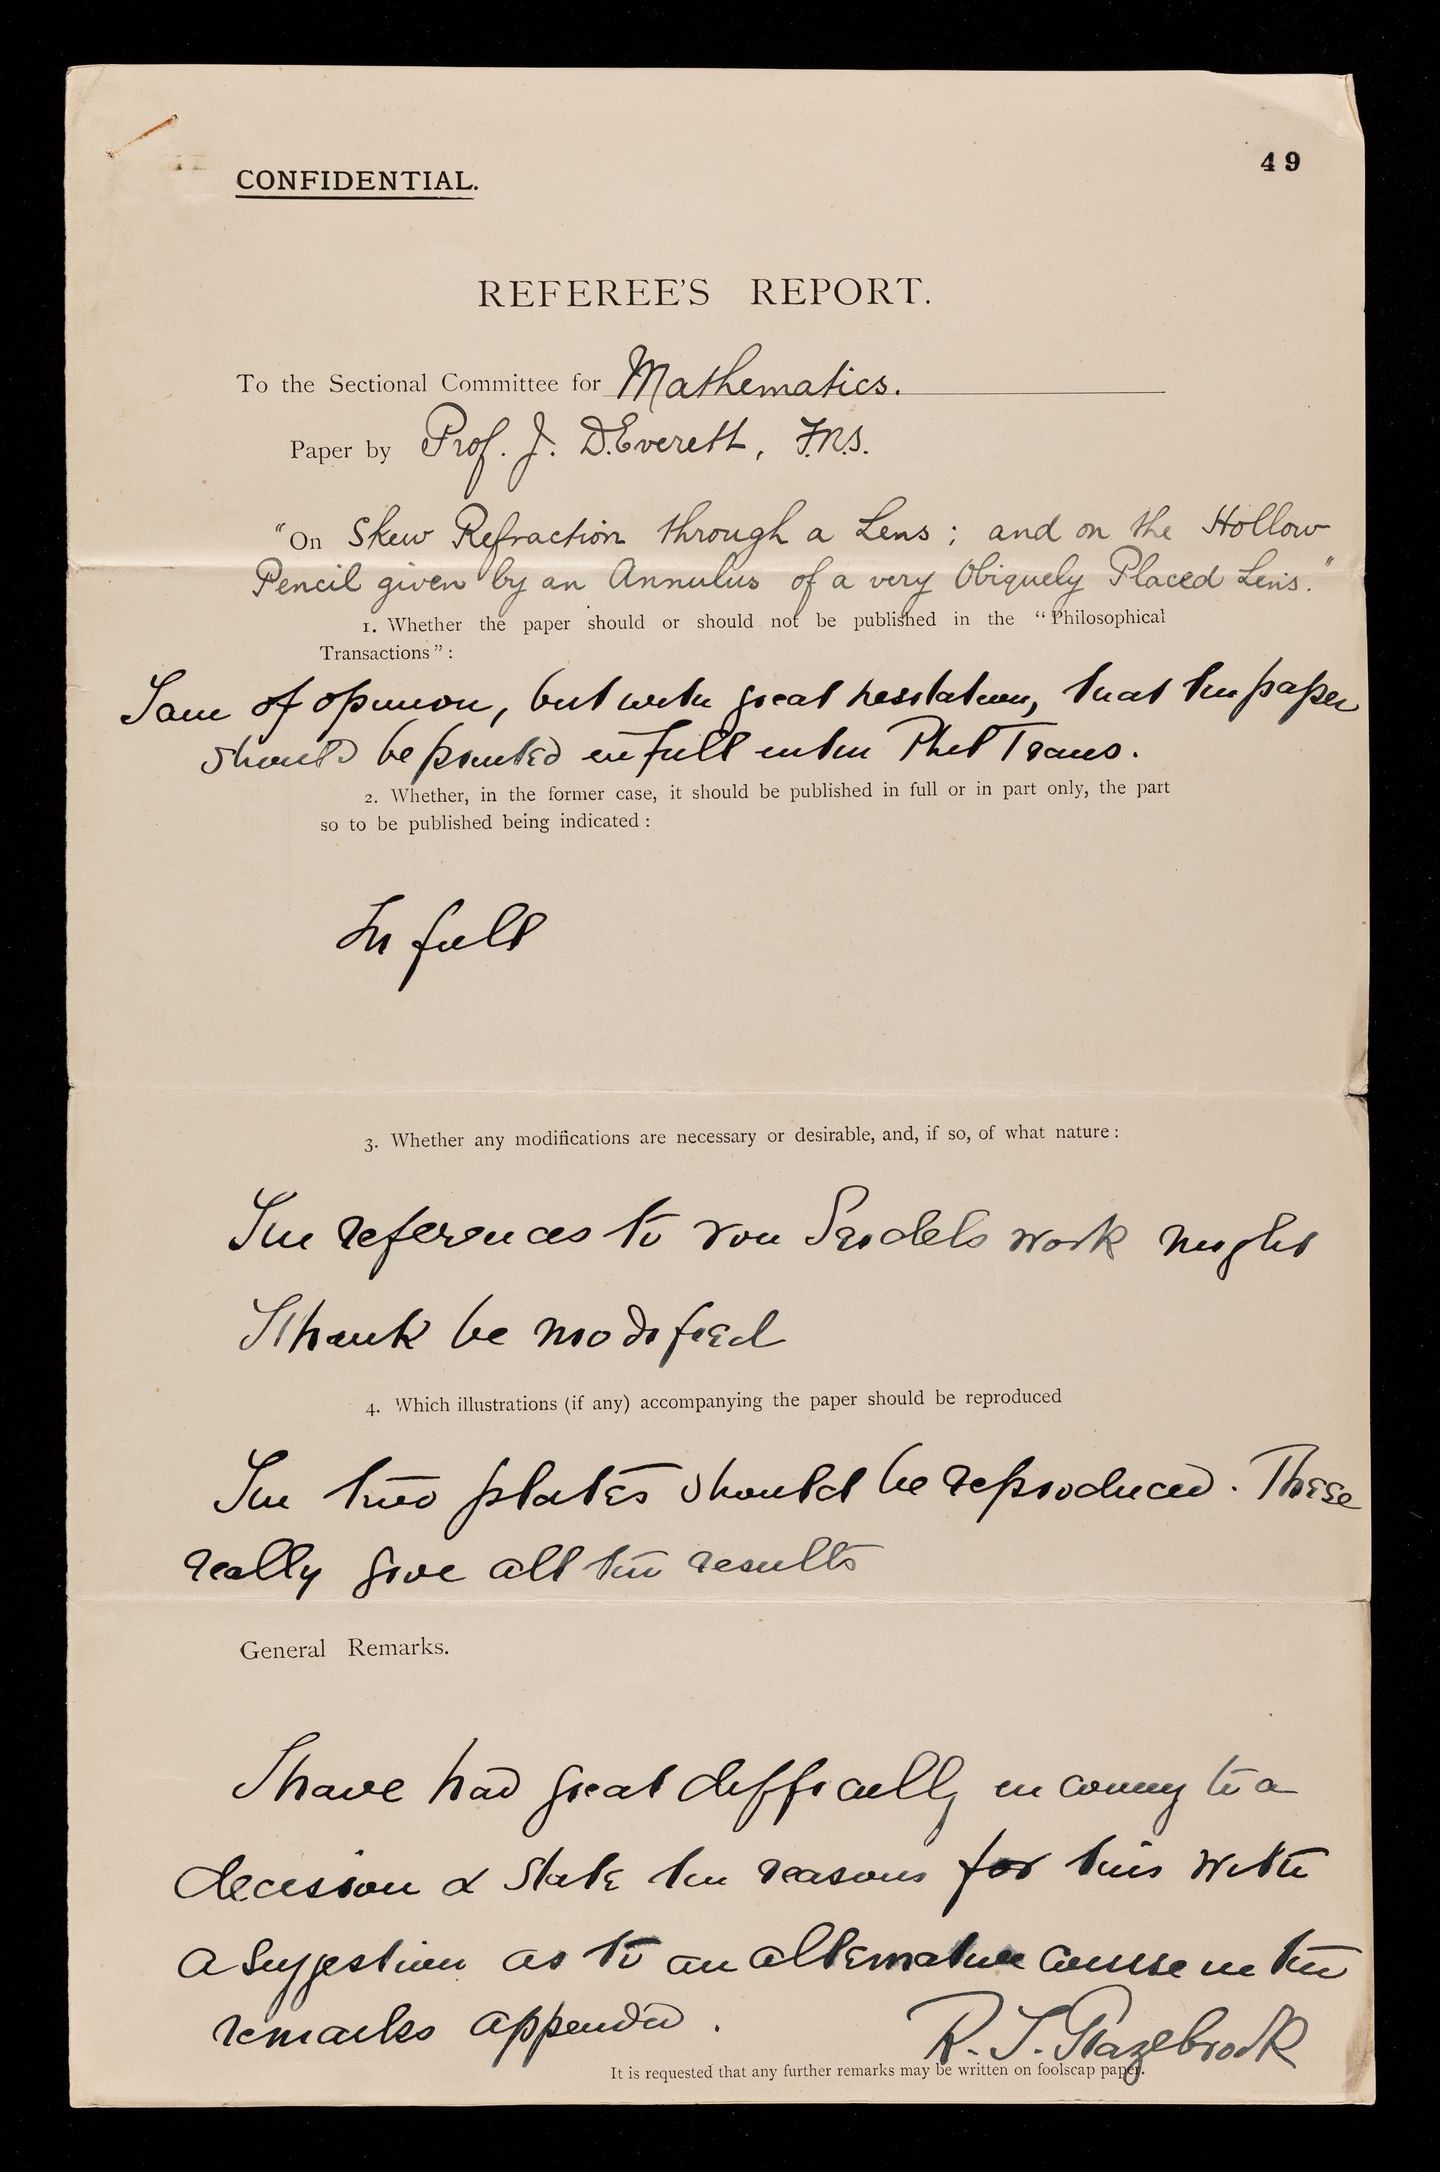 49
CONFIDENTIAL.
REFEREE'S REPORT.
To the Sectional Committee for Mathematics.
Paper by Prof. J. D. Everett, F.R.S.
"On Skew Refraction through a Lens; and on the Hollow
Pencil given by an Annulus of a very Obiquely Placed Lens."
1. Whether the paper should or should not be published in the "Philosophical
Transactions":
I am of opinion, but with great hesitation, that the paper
should be printed in full in the Phil Trans.
2. Whether, in the former case, it should be published in full or in part only, the part
so to be published being indicated:
In full
3. Whether any modifications are necessary or desirable, and, if so, of what nature:
The references to von Seidels work might
I think be modified
4. Which illustrations (if any) accompanying the paper should be reproduced
The two plates should be reproduced. These
really give all the results
General Remarks.
I have had great difficulty in coming to a
decision & state the reasons for this with
a suggestion as to an alternative course in the
remarks appended.
R. T. Glazebrook
It is requested that any further remarks may be written on foolscap paper.